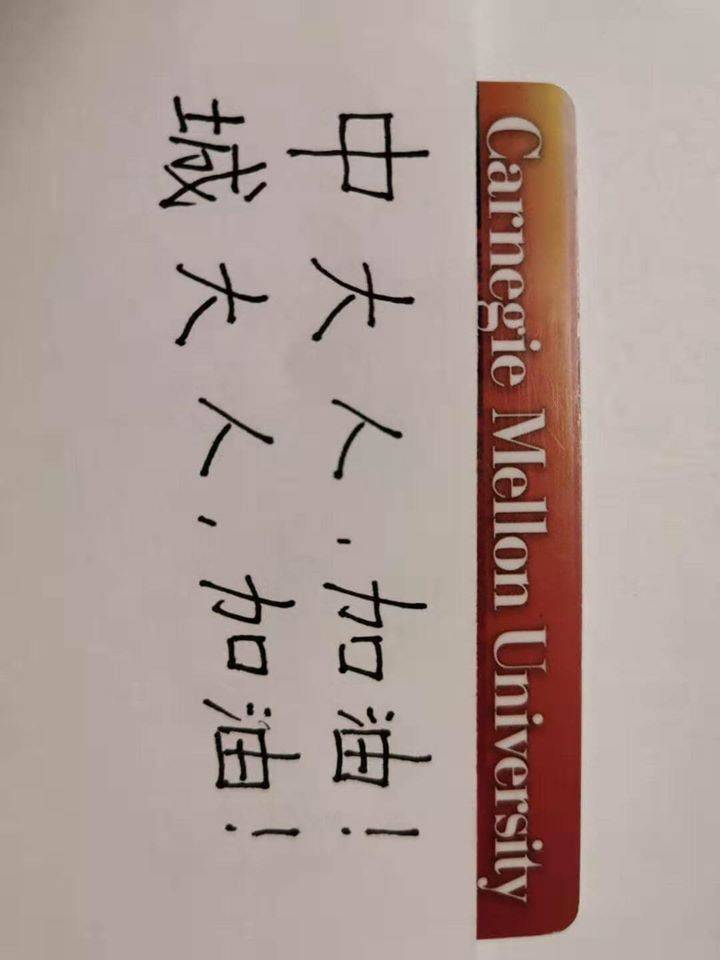 Carnegie Mellon University
中大人,加油!
城大人,加油!